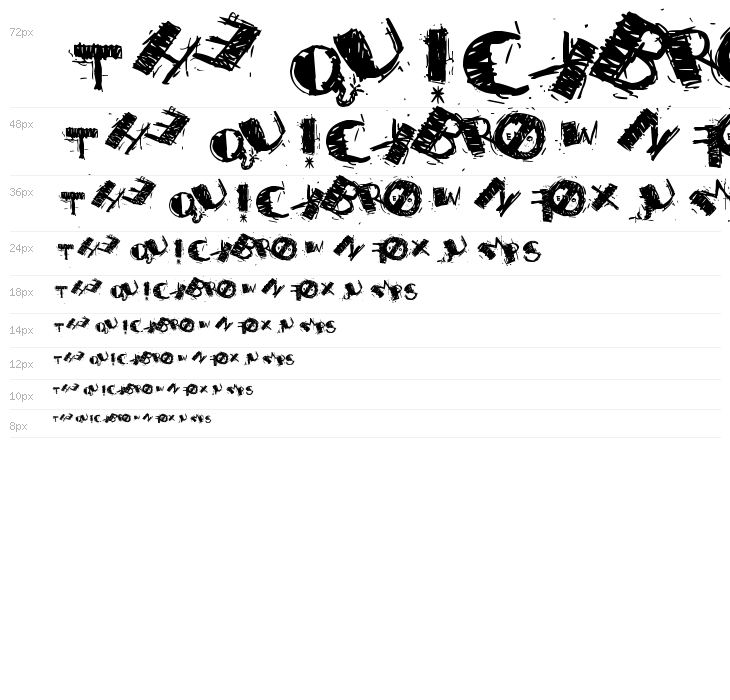 72px THE QUICK BRO
48px THE QUICK BROWN FO
36px THE QUICK BROWN FOX JUM
24px THE QUICK BROWN FOX JUMPS
18px THE QUICK BROWN FOX JUMPS
14px THE QUICK BROWN FOX JUMPS
12px THE QUICK BROWN FOX JUMPS
10px THE QUICK BROWN FOX JUMPS
8px THE QUICK BROWN FOX JUMPS